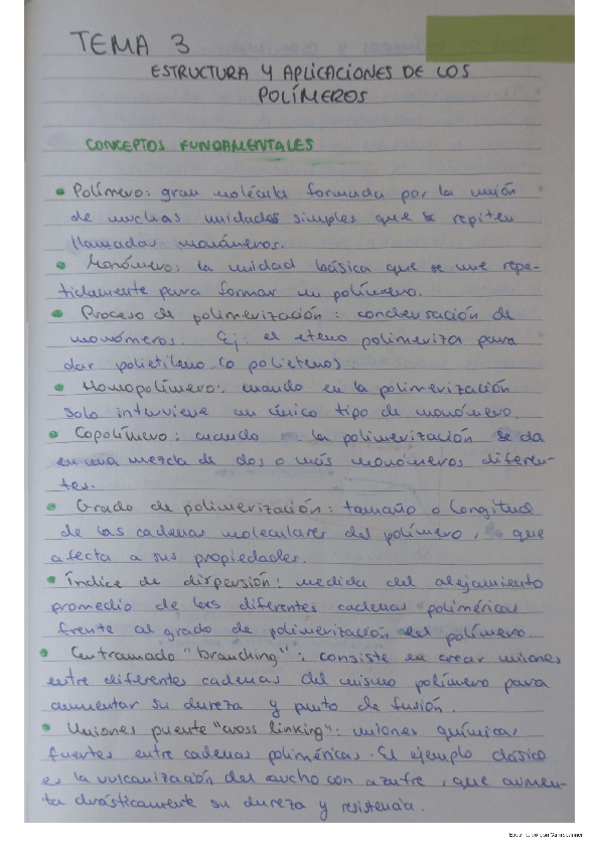 TEMA 3
ESTRUCTURA Y APLICACIONES DE LOS
POLÍMEROS
CONCEPTOS FUNDAMENTALES
• Polímero: gran molécula formada por la unión
de muchas unidades simples que se repiten
llamadas monómeros.
• Monómero: la unidad básica que se une repe-
tidamente para formar un polímero.
• Proceso de polimerización: condensación de
monómeros. Ej: el eteno polimeriza para
dar polietileno (o polieteno)
• Homopolímero: cuando en la polimerización
solo interviene un único tipo de monómero.
• Copolímero: cuando la polimerización se da
en una mezcla de dos o más monómeros diferen-
tes.
• Grado de polimerización: tamaño o longitud
de las cadenas moleculares del polímero, que
afecta a sus propiedades.
• Índice de dispersión: medida del alejamiento
promedio de las diferentes cadenas poliméricas
frente al grado de polimerización del polímero.
• Entramado "branching": consiste en crear uniones
entre diferentes cadenas del mismo polímero para
aumentar su dureza y punto de fusión.
• Uniones puente "cross linking": uniones químicas
fuertes entre cadenas poliméricas. El ejemplo clásico
es la vulcanización del caucho con azufre, que aumen-
ta drásticamente su dureza y resistencia.